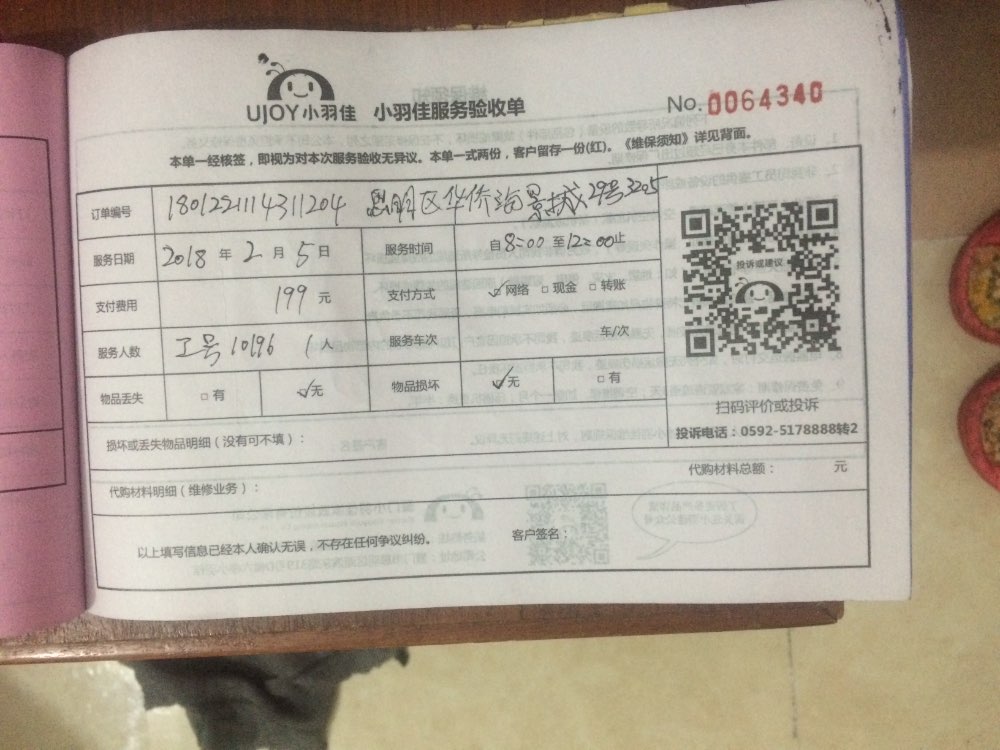 UJOY小羽佳 小羽佳服务验收单 No. 0064340
本单一经核签，即视为对本次服务验收无异议。本单一式两份，客户留存一份(红)。《维保须知》详见背面。
订单编号 1801221114311204 思明区华侨海景城29号3205
服务日期 2018 年 2 月 5 日 服务时间 自8:00 至12:00止
支付费用 199 元 支付方式 ☑网络 □现金 □转账
服务人数 工号10196 1人 服务车次 车/次
物品丢失 □有 ☑无 物品损坏 ☑无 □有
投诉或建议
扫码评价或投诉
损坏或丢失物品明细（没有可不填）： 投诉电话：0592-5178888转2
代购材料明细（维修业务）： 代购材料总额： 元
以上填写信息已经本人确认无误，不存在任何争议纠纷。 客户签名：